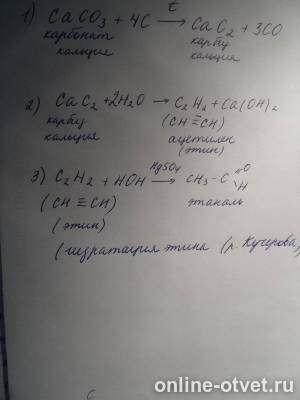 t
1) CaCO₃ + 4C → CaC₂ + 3CO
карбонат карбид
кальция кальция
2) CaC₂ + 2H₂O → C₂H₂ + Ca(OH)₂
карбид (CH ≡ CH)
кальция ацетилен
(этин)
3) C₂H₂ + HOH HgSO₄ → CH₃-C =O H
(CH ≡ CH) этаналь
(этин)
(гидратация этина (р. Кучерова)
с
online-otvet.ru